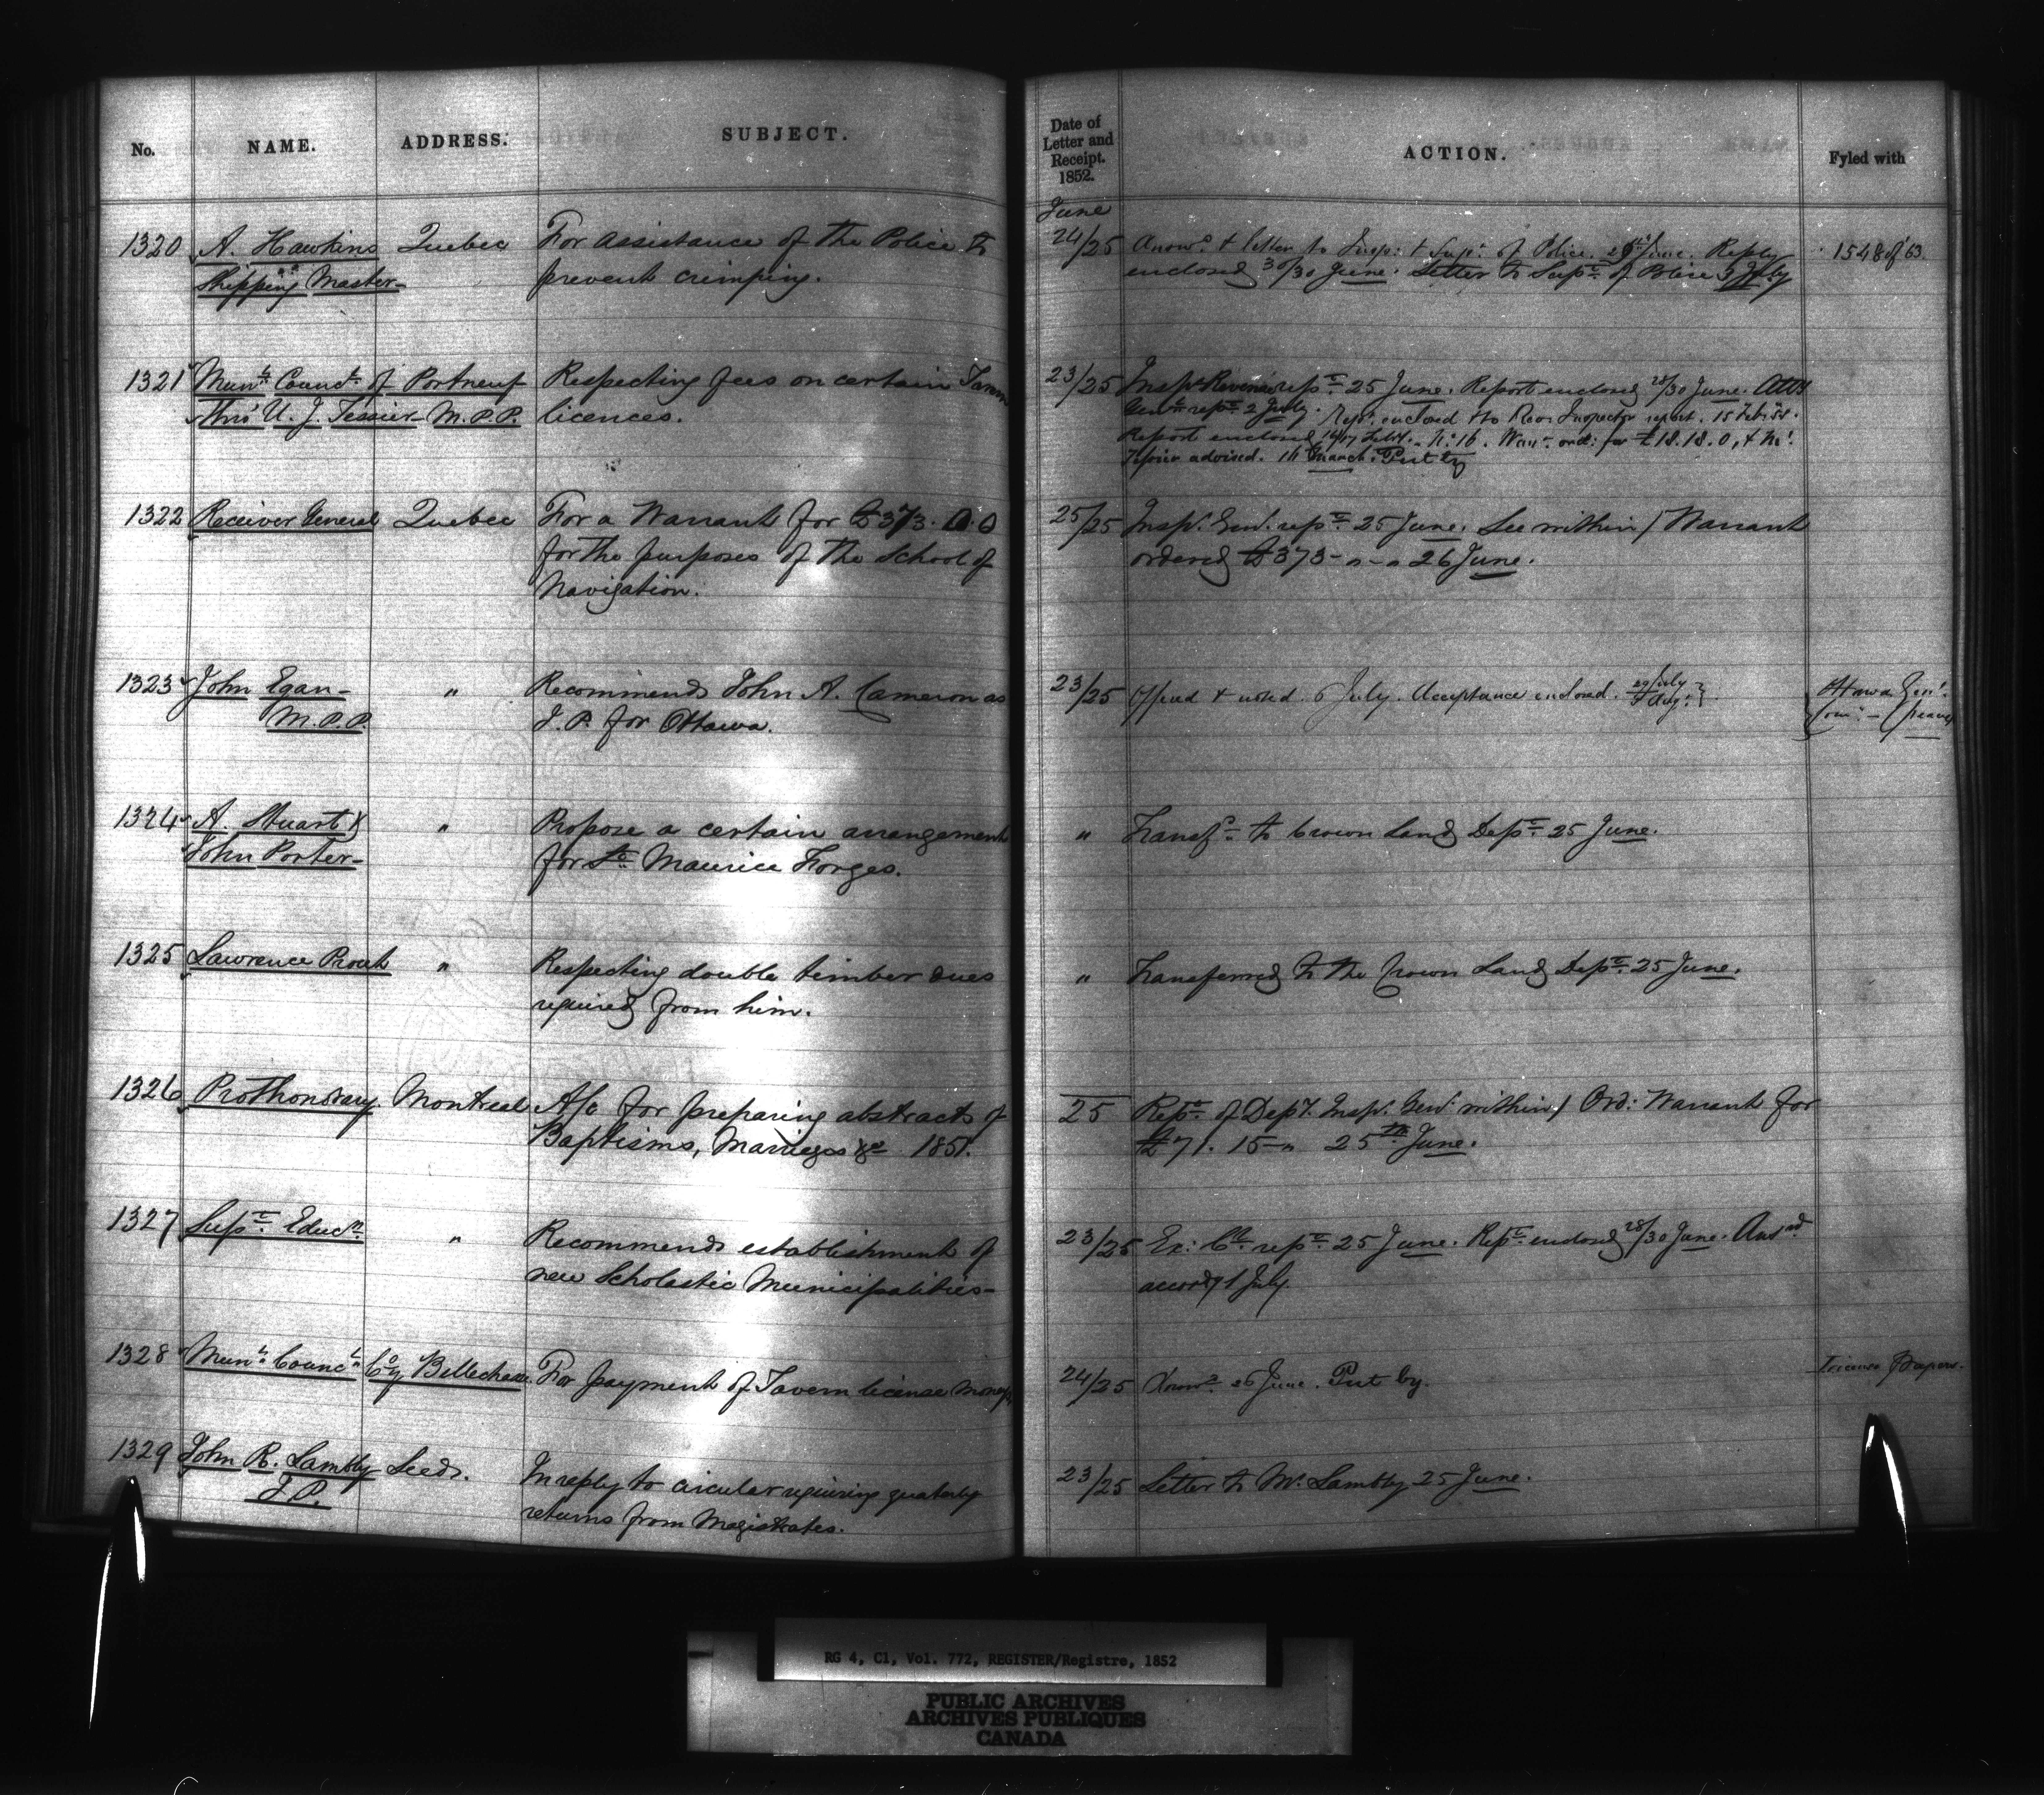 No. NAME. ADDRESS. SUBJECT.
Date of
Letter and
Receipt.
1852.
ACTION. Fyled with
June
1320 A. Hawkins Quebec For assistance of the Police to
Shipping Master prevent crimping.
24/25 Answd. & letter to Insp: & Supt. of Police June. Reply 1548 of 53
enclosed 30/30 June. Letter to Supt. of Police July
1321 Munl. Councl. of Portneuf Respecting fees on certain Tavern
thro' U. J. Tessier M.P.P. licences.
23/25 Inspr. Revenue rept. 25 June. Report enclosed 28/30 June. Atty
Genl. rept. 2 July. Rept. enclosed to Rev. Inspector report. 15 Feb: 54.
Report enclosed No: 16. Warrt. ord: for £18.18.0, & Mr.
Tessier advised. March. Put by
1322 Receiver General Quebec For a Warrant for £373. 0. 0
for the purposes of the School of
Navigation.
25/25 Inspr. Genl. rept. 25 June. See within / Warrant
ordered £373 - " - " 26 June.
1323 John Egan - " Recommends John A. Cameron as
M.P.P. J.P. for Ottawa.
23/25 Offered & noted 6 July. Acceptance enclosed. 29 July Ottawa Genl.
Aug: Com: - Peace
1324 A. Stuart & " Propose a certain arrangement
John Porter - for St. Maurice Forges.
" Transfd. to Crown Land Dept. 25 June.
1325 Lawrence " Respecting double timber dues
required from him.
" Transferred to the Crown Land Dept. 25 June.
1326 Prothonotary Montreal A/c for preparing abstracts of
Baptisms, Marriages &c 1851.
25 Rept. of Depy. Inspr. Genl. within / Ord: Warrant for
£71. 15 - " 25th June.
1327 Supt. Educn. " Recommends establishment of
new Scholastic Municipalities -
23/25 Ex: Cl. rept. 25 June. Rept. enclosed 28/30 June. Answd
accordy 1 July.
1328 Munl. Councl. Coy Bellechasse For payment of Tavern license moneys
24/25 Knowd. 26 June. Put by. License Papers.
1329 John R. Lambly Leeds. In reply to circular requiring quarterly
J.P. returns from Magistrates.
23/25 Letter to Mr. Lambly 25 June.
RG 4, C1, Vol. 772, REGISTER/Registre, 1852
PUBLIC ARCHIVES
ARCHIVES PUBLIQUES
CANADA